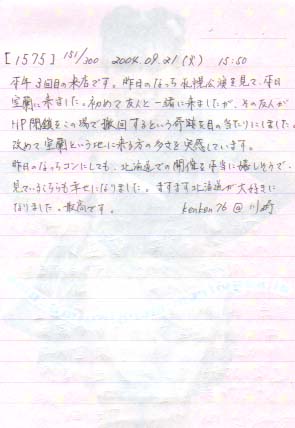 [1575] 151/300 2004.09.21(火) 15:50
本年3回目の来店です。昨日のなっち札幌公演を見て、本日
室蘭に来ました。初めて友人と一緒に来ましたが、その友人が
HP閉鎖をこの場で撤回するという奇蹟を目の当たりにしました。
改めて室蘭という地に来る方の多さを実感しています。
昨日のなっちコンにしても、北海道での開催を本当に嬉しそうで、
見ているこちらも幸せになりました。ますます北海道が大好きに
なりました。最高です。 kenken76@川崎